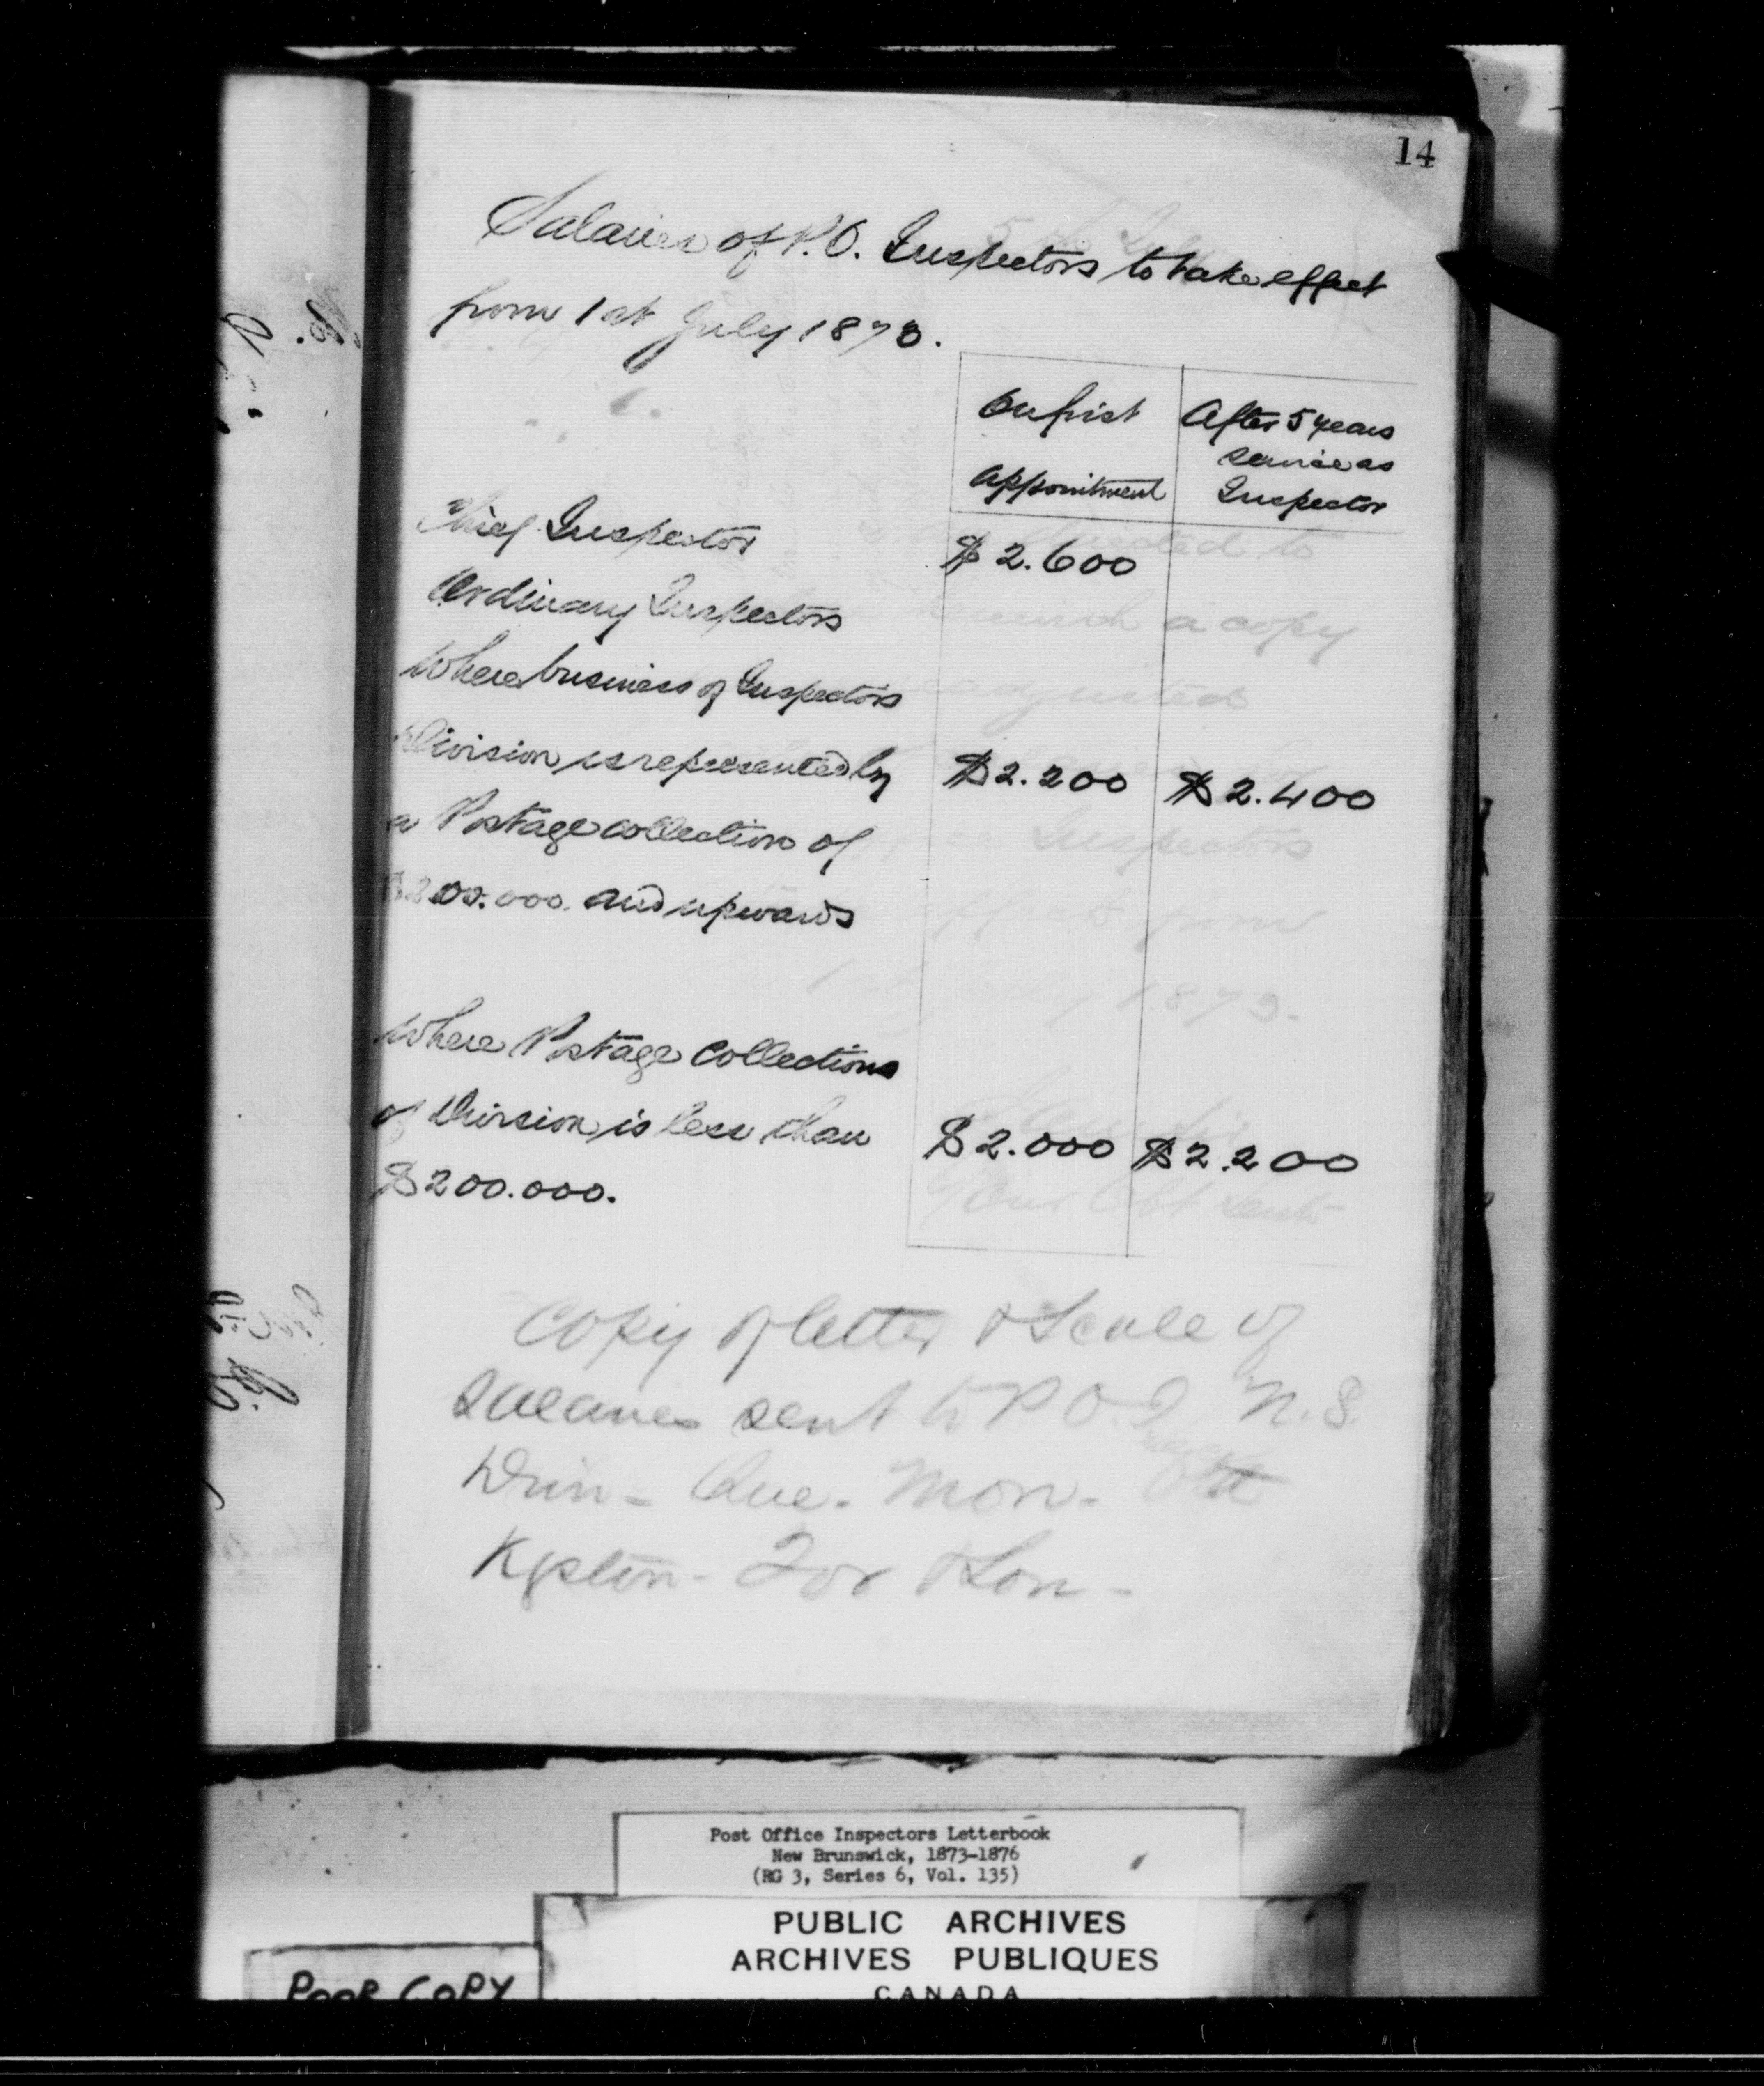 14
Salaries of P.O. Inspectors to take effect
from 1st July 1873.
On first
appointment
After 5 years
service as
Inspector
Chief Inspector
$2.600
Ordinary Inspectors
Where business of Inspectors
Division is represented by
$2.200 $2.400
a Postage collection of
$200.000. and upwards
Where Postage Collections
of Division is less than
$2.000 $2.200
$200.000.
Copy of letter & Scale of
Salaries sent to P O I N.S.
Divn - Que. Mon. Ott
Kgston - Tor & Lon -
Post Office Inspectors Letterbook
New Brunswick, 1873-1876
(RG 3, Series 6, Vol. 135)
PUBLIC ARCHIVES
ARCHIVES PUBLIQUES
CANADA
POOR COPY